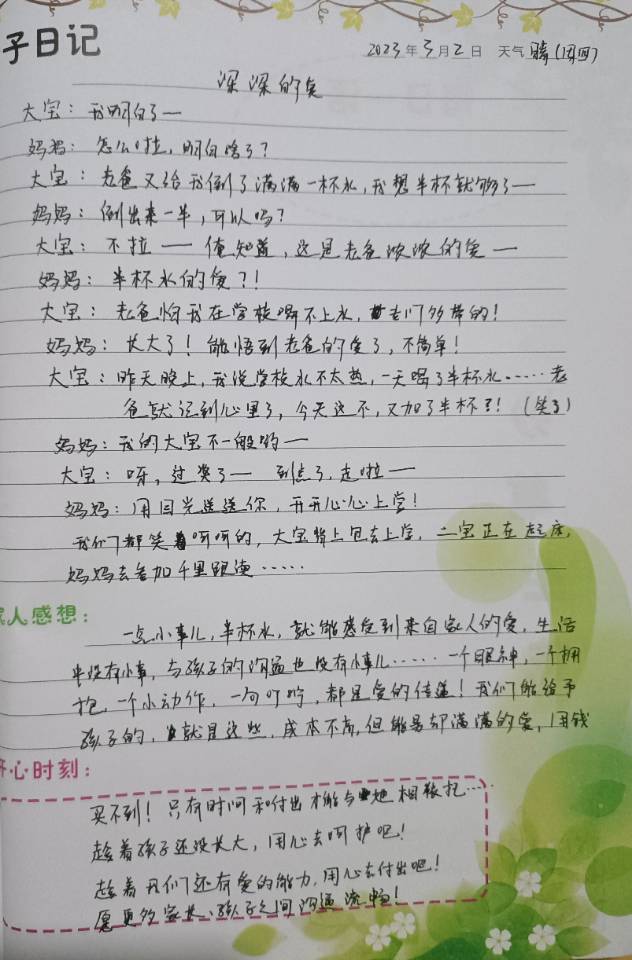 子日记
2023年3月2日 天气 晴(周四)
深深的爱
大宝：我明白了—
妈妈：怎么啦，明白啥了？
大宝：老爸又给我倒了满满一杯水，我想半杯就够了—
妈妈：倒出来一半，可以吗？
大宝：不拉—俺知道，这是老爸浓浓的爱—
妈妈：半杯水的爱？！
大宝：老爸怕我在学校喝不上水，老们够棒的！
妈妈：长大了！能悟到老爸的爱了，不简单！
大宝：昨天晚上，我说学校水不太热，一天喝了半杯水……老
爸就记到心里了，今天这不，又加了半杯？！（笑了）
妈妈：我的大宝不一般哟—
大宝：呀，过奖了— 到点了，走啦—
妈妈：用目光送送你，开开心心上学！
我们都笑着呵呵的，大宝背上包去上学，二宝正在起床，
妈妈去参加千里跟速……
家人感想：
一点小事儿，半杯水，就能感受到来自家人的爱，生活
中没有小事，与孩子的沟通也没有小事儿……一个眼神，一个拥
抱，一个小动作，一句叮咛，都是爱的传递！我们能给予
孩子的，就是这些，成本不高，但能易却满满的爱，用钱
开心时刻：
买不到！只有时间和付出才能与她相表托……
趁着孩子还没长大，用心去呵护吧！
趁着我们还有爱的能力，用心去付出吧！
愿更多家长、孩子之间沟通流畅！